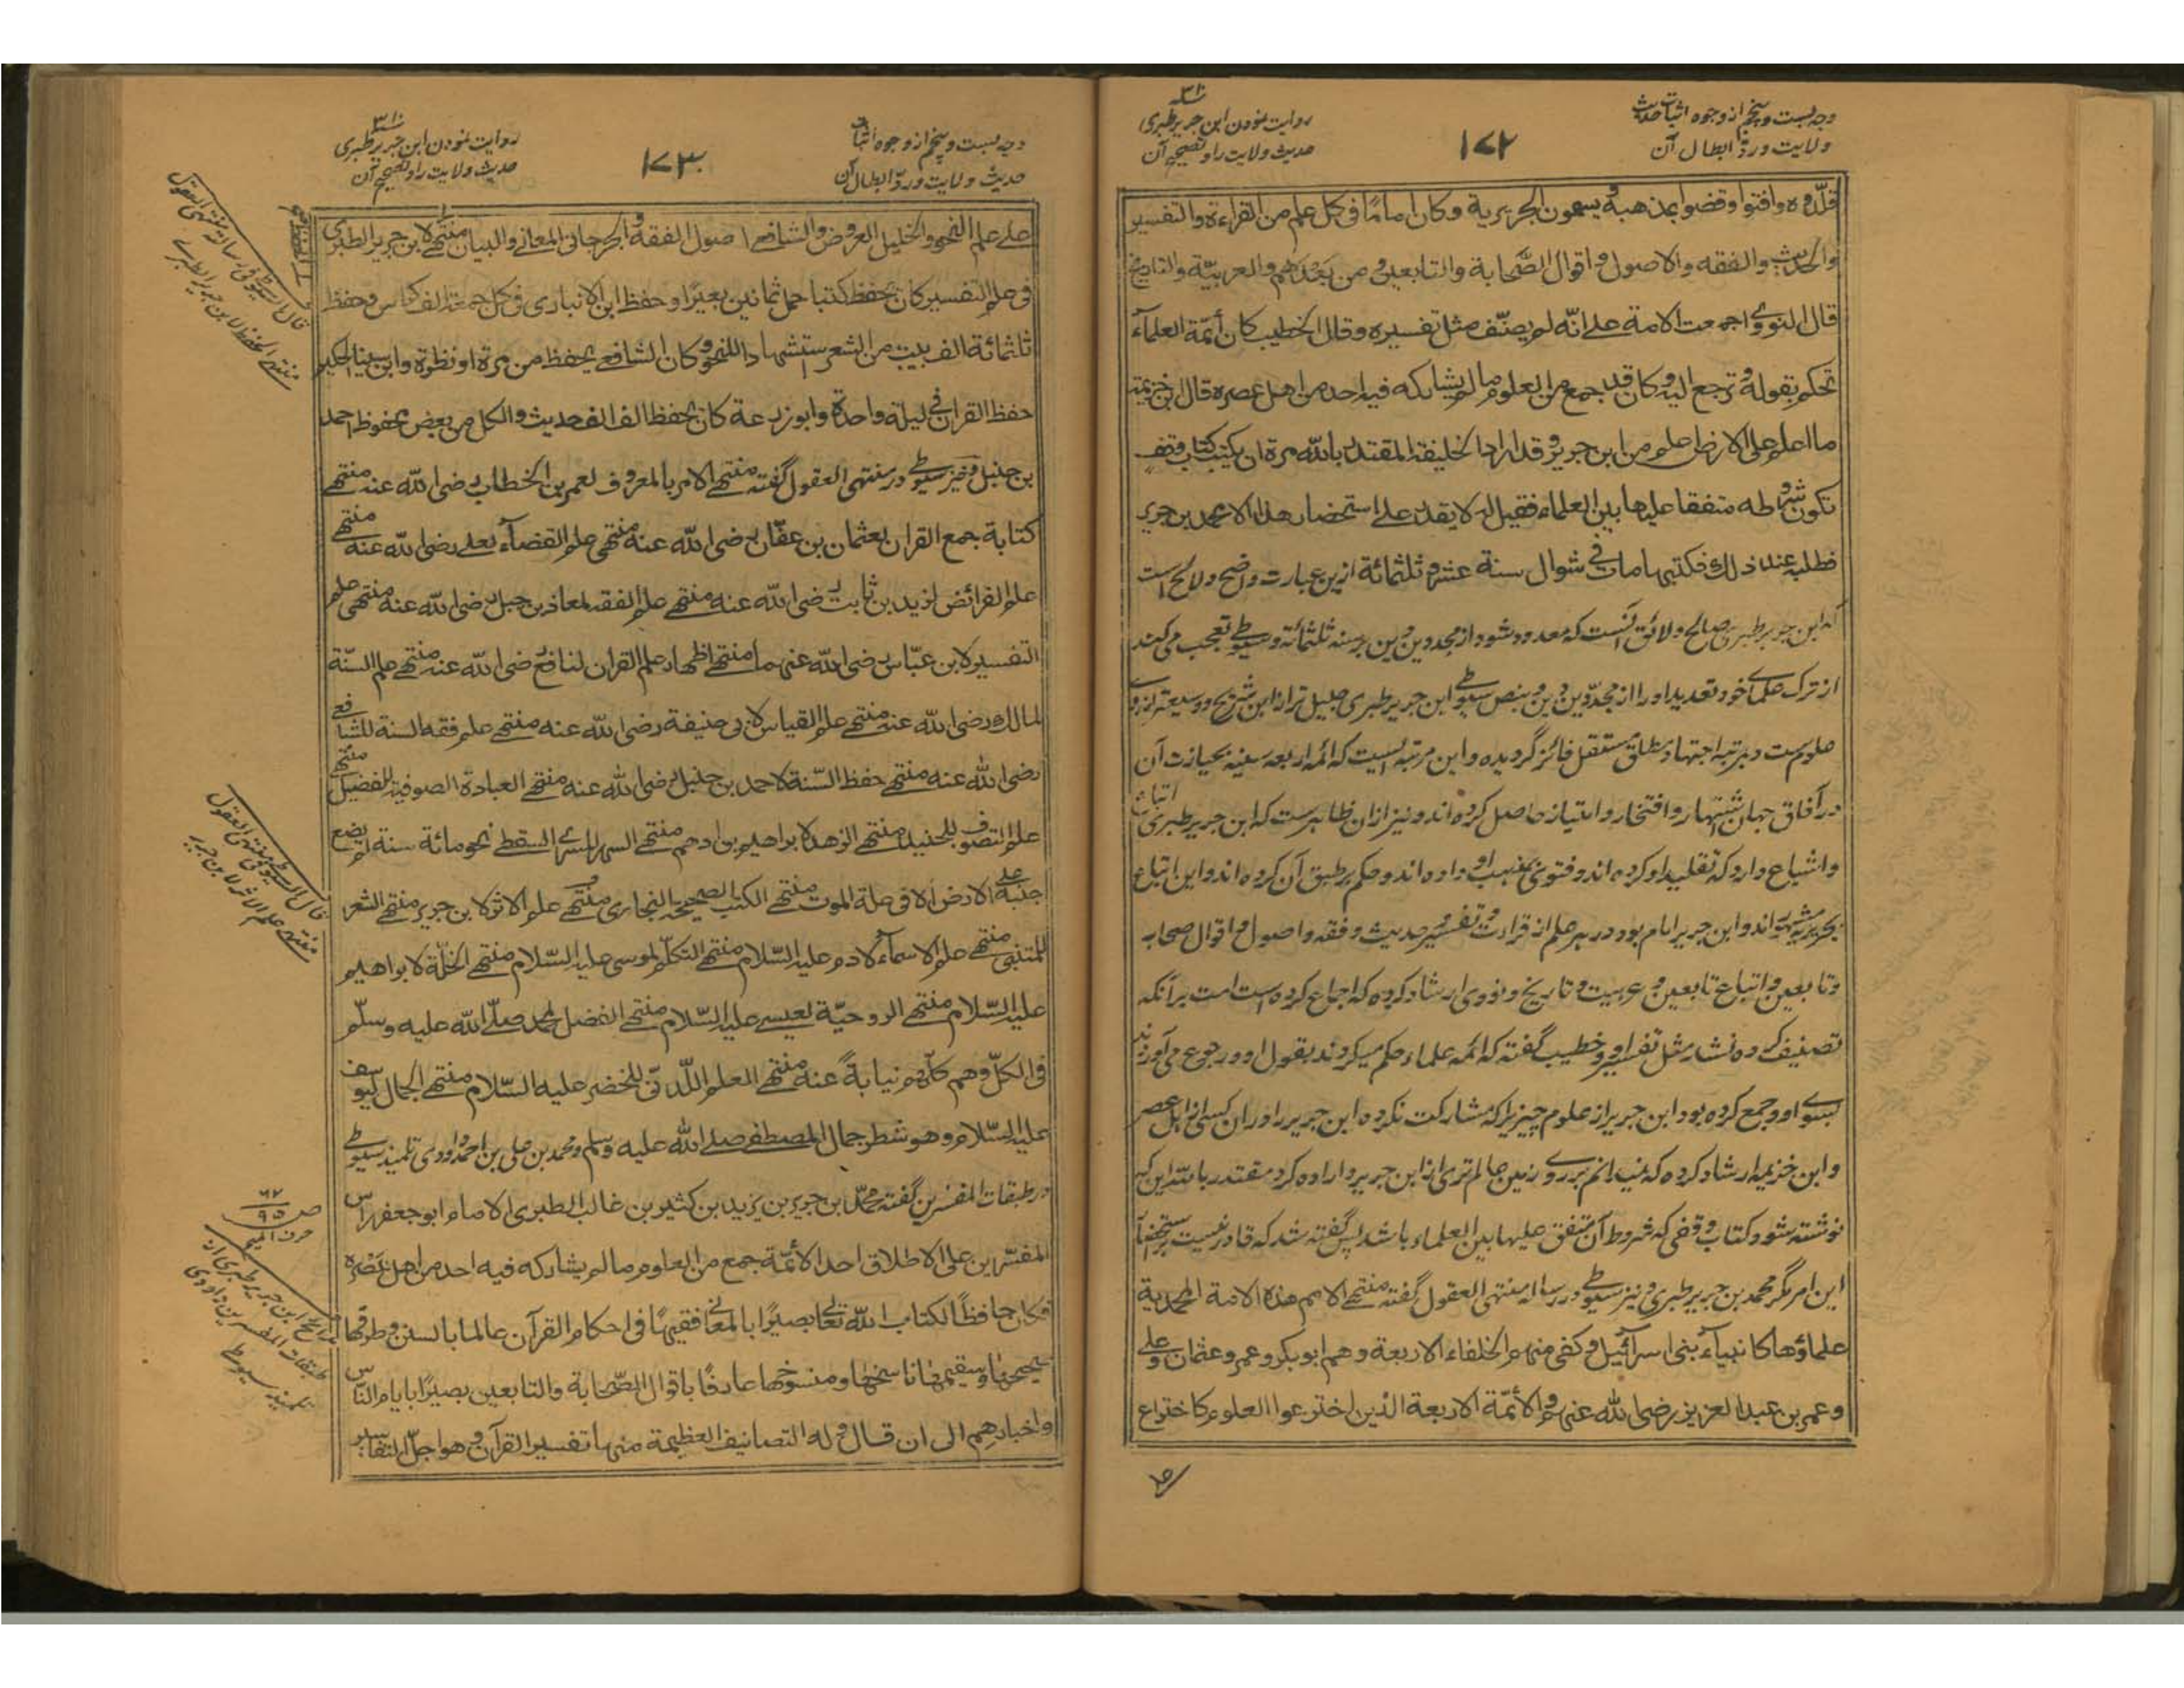 وجہ بست و پنجم از وجوہ اثبات حدیث
ولایت و ردّ ابطال آن
۱۷۲
روایت نمودن ابن جریر طبری
حدیث ولایت را و تصحیح آن
قلّدوه وافتوا وقضوا بمذهبه ويسمون الجريرية وكان اماما في كل علم من القراءة والتفسير
والحديث والفقه والاصول واقوال الصّحابة والتابعين ومن بعدهم والعربيّة والتاريخ
قال النووي اجمعت الامة على انّه لم يصنّف مثل تفسيره وقال الخطيب كان أئمّة العلماء
تحكم بقوله وترجع اليه وكان قد جمع من العلوم ما لم يشاركه فيه احد من اهل عصره قال ابن خزيمة
ما اعلم على الارض اعلم من ابن جرير وقد اراد الخليفة المقتدر بالله مرة ان يكتب كتاب وقف
تكون شروطه متفقا عليها بين العلماء فقيل له لا يقدر على استحضار هذا الا محمد بن جرير
فطلب عنه ذلك فكتبها مات في شوال سنة عشر وثلثمائة ازین عبارت واضح و لائح است
که ابن جریر طبری صالح و لائق آنست که معدود شود از مجددین دین بر سنه ثلثمائة و سیوطی تعجب می کند
از ترک علمای خود تعدید او را از مجدّدین دین و بنص سیوطی ابن جریر طبری جلیل تر از ابن شریح و وسیعتر از وے
علوم ست و بمرتبه اجتهاد مطلق مستقل فائز گردیده و این مرتبه ایست که ائمه اربعه سنیه بحیازت آن
در آفاق جهان اشتهار و افتخار و امتیاز حاصل کرده اند و نیز ازان ظاهرست که ابن جریر طبری اتباع
و اشیاع دارد که تقلید او کرده اند و فتوی بمذهب او داده اند و حکم بر طبق آن کرده اند و این اتباع
بجریریه مشهور اند و ابن جریر امام بود در هر علم از قراءت و تفسیر و حدیث و فقه و اصول و اقوال صحابه
و تابعین و اتباع تابعین و عربیت و تاریخ و نووی ارشاد کرده که اجماع کرده است امت برآنکه
تصنیف کرده نشد مثل تفسیر او و خطیب گفته که ائمه علماء حکم میکردند بقول او و رجوع می آوردند
بسوے او و جمع کرده بود ابن جریر از علوم چیزیرا که مشارکت نکرده ابن جریر را دران کسی از اهل عصر
و ابن خزیمه ارشاد کرده که نمیدانم بر روے زمین عالم تری از ابن جریر و اراده کرد مقتدر بالله این که
نوشته شود کتاب وقفی که شروط آن متفق علیها بین العلماء باشد پس گفته شد که قادر نیست بر استحضار
این امر مگر محمد بن جریر طبری و نیز سیوطی در رساله منتهی العقول گفته منتهى الامم هذه الامة المحمدية
علماؤها كانبياء بني اسرائيل وكفى منهم الخلفاء الاربعة وهم ابو بكر وعمر وعثمان وعلي
وعمر بن عبد العزيز رضى الله عنهم والأئمّة الاربعة الذين اخترعوا العلوم كاختراع
وجہ بست و پنجم از وجوہ اثبات
حدیث ولایت و ردّ ابطال آن
۱۷۳
روایت نمودن ابن جریر طبری
حدیث ولایت را و تصحیح آن
علي علم النحو والخليل العروض والشافعي اصول الفقه والجرجاني المعاني والبيان منتهى لابن جرير الطبري
في علم التفسير كان يحفظ كتبا حمل ثمانين بعيرا وحفظ ابن الانباري في كل جمعة الف كراس وحفظ
ثلثمائة الف بيت من الشعر استشهادا للنحو وكان الشافعي يحفظ من مرة او نظرة وابن سينا الحكيم
حفظ القران في ليلة واحدة وابو زرعة كان يحفظ الف الف حديث والكل من بعض محفوظ احمد
بن حنبل و نیز سیوطی در منتهى العقول گفته منتهى الامر بالمعروف لعمر بن الخطاب رضى الله عنه منتهى
كتابة جمع القران لعثمان بن عفّان رضى الله عنه منتهى علم القضاء لعلي رضى الله عنه منتهى
علم الفرائض لزيد بن ثابت رضى الله عنه منتهى علم الفقه لمعاذ بن جبل رضى الله عنه منتهى علم
التفسير لابن عبّاس رضى الله عنهما منتهى اظهار علم القران لنافع رضى الله عنه منتهى علم السنّة
لمالك رضى الله عنه منتهى علم القياس لابي حنيفة رضى الله عنه منتهى علم فقه السنة للشافعي
رضى الله عنه منتهى حفظ السّنة لاحمد بن حنبل رضى الله عنه منتهى العبادة الصوفية للفضيل منتهى
علم التصوف للجنيد منتهى الزهد لابراهيم بن ادهم منتهى السهر للسري السقطي نحو مائة سنة لم يضع
جنبه على الارض الا في علة الموت منتهى الكتب الصحيحة للبخاري منتهى علم الاثر لابن جرير منتهى الشعر
للمتنبي منتهى علم الاسماء لادم عليه السّلام منتهى التكلّم لموسى عليه السّلام منتهى الخلّة لابراهيم
عليه السّلام منتهى الروحيّة لعيسى عليه السّلام منتهى الفضل لمحمد صلّى الله عليه وسلّم
في الكلّ وهم كلّهم نيابةً عنه منتهى العلم اللّدنّي للخضر عليه السّلام منتهى الجمال ليوسف
عليه السّلام وهو شطر جمال المصطفى صلى الله عليه وسلم و محمد بن علی بن احمد داودی تلمیذ سیوطی
در طبقات المفسرین گفته محمّد بن جرير بن يزيد بن كثير بن غالب الطبري الامام ابو جعفر راس
المفسّرين على الاطلاق احد الأئمّة جمع من العلوم ما لم يشاركه فيه احد من اهل عصره
فكان حافظًا لكتاب الله تعالى بصيرًا بالمعاني فقيهًا في احكام القرآن عالما بالسنن وطرقها
صحيحها وسقيمها ناسخها ومنسوخها عارفًا باقوال الصّحابة والتابعين بصيرًا بايام النّاس
واخبارهم الى ان قال وله التصانيف العظيمة منها تفسير القرآن وهو اجلّ التفاسير
قال السیوطی فی رسالة منتهی العقول
منتهی الحفظ لابن جریر الطبری
قال السیوطی فی منتهی العقول
منتهی علم الاثر لابن جریر
ص ٩٥
حرف المیم
ابن جریر طبری از
طبقات المفسرین داودی
تلمیذ سیوطی